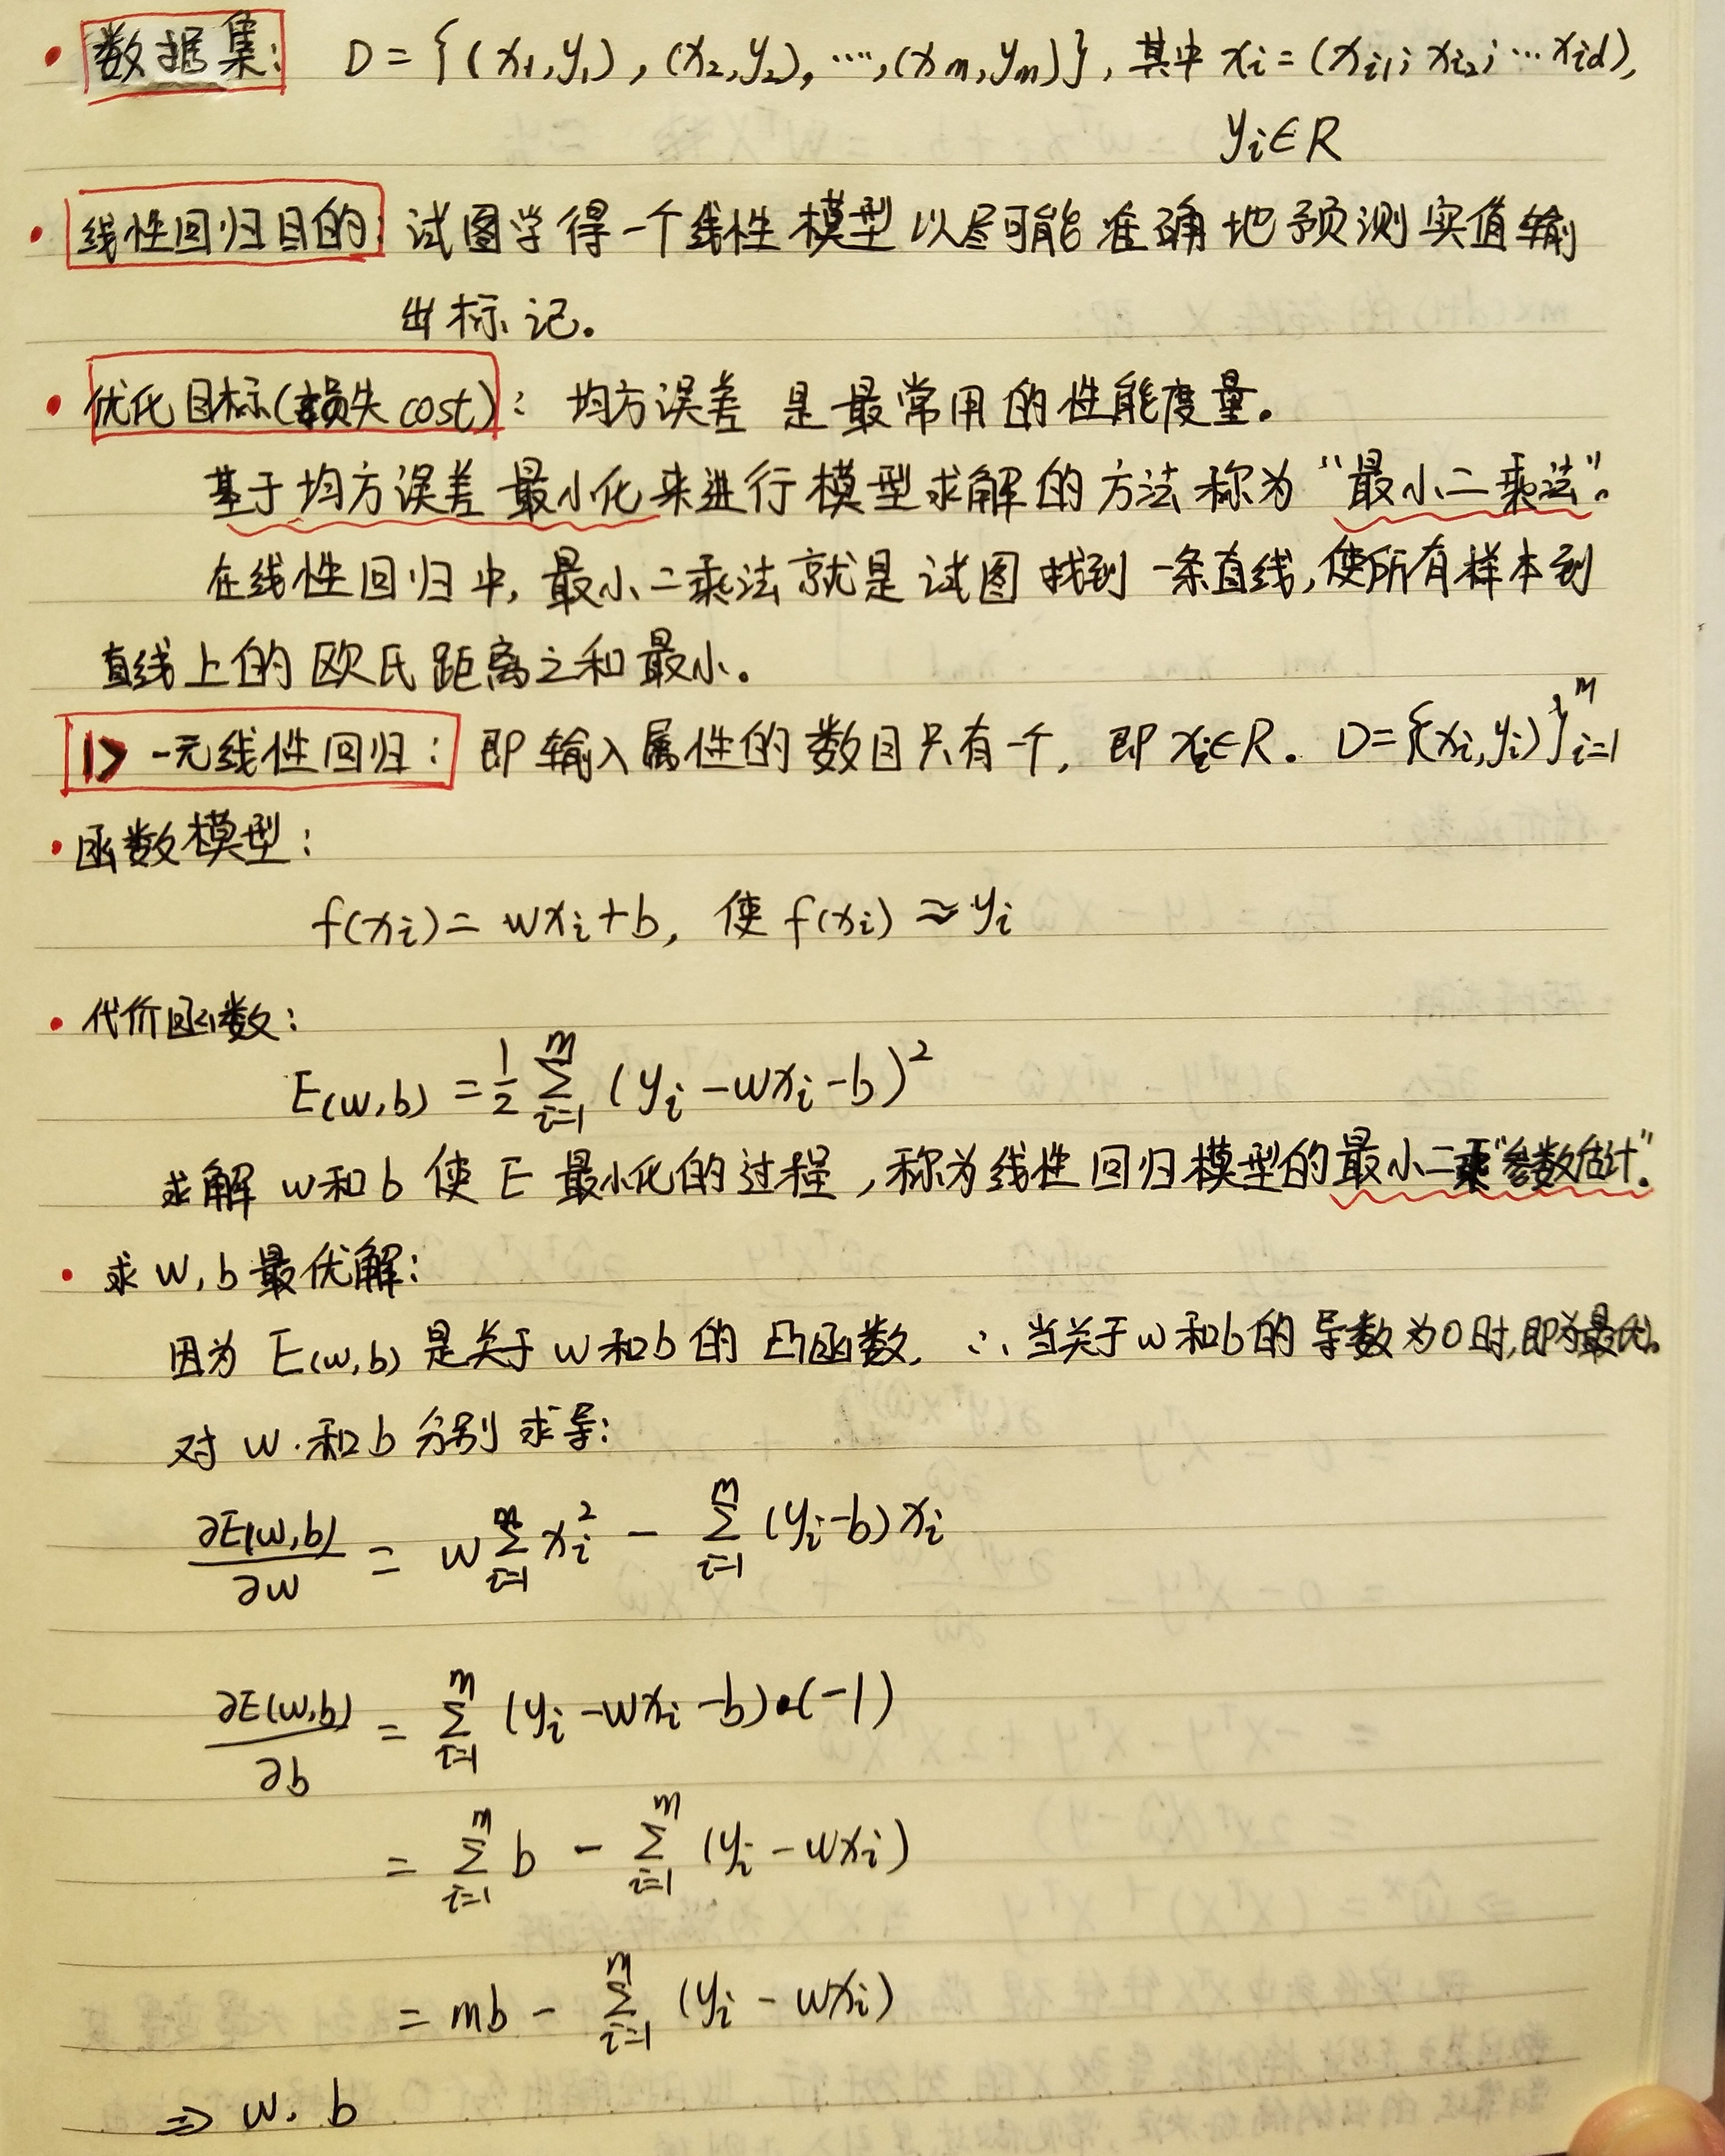 • 数据集: D = {(x₁,y₁), (x₂,y₂), …, (xm,ym)}, 其中 xi = (xi1; xi2; … xid),
yi∈R
• 线性回归目的: 试图学得一个线性模型以尽可能准确地预测实值输
出标记。
• 优化目标(损失cost): 均方误差是最常用的性能度量。
基于均方误差最小化来进行模型求解的方法称为“最小二乘法”。
在线性回归中, 最小二乘法就是试图找到一条直线, 使所有样本到
直线上的欧氏距离之和最小。
1> 一元线性回归: 即输入属性的数目只有一个, 即 xi∈R. D={(xi,yi)}ᵐi=1
• 函数模型:
f(xi) = wxi+b, 使 f(xi) ≈ yi
• 代价函数:
E(w,b) = 1/2 ∑ᵐi=1 (yi-wxi-b)²
求解 w和b 使 E 最小化的过程, 称为线性回归模型的最小二乘“参数估计”.
• 求 w, b 最优解:
因为 E(w,b) 是关于 w和b 的凸函数, ∴ 当关于w和b的导数为0时,即为最优。
对 w.和b 分别求导:
∂E(w,b)/∂w = w∑ᵐi=1 xi² - ∑ᵐi=1 (yi-b)xi
∂E(w,b)/∂b = ∑ᵐi=1 (yi-wxi-b)•(-1)
= ∑ᵐi=1 b - ∑ᵐi=1 (yi-wxi)
= mb - ∑ᵐi=1 (yi-wxi)
⇒ w. b